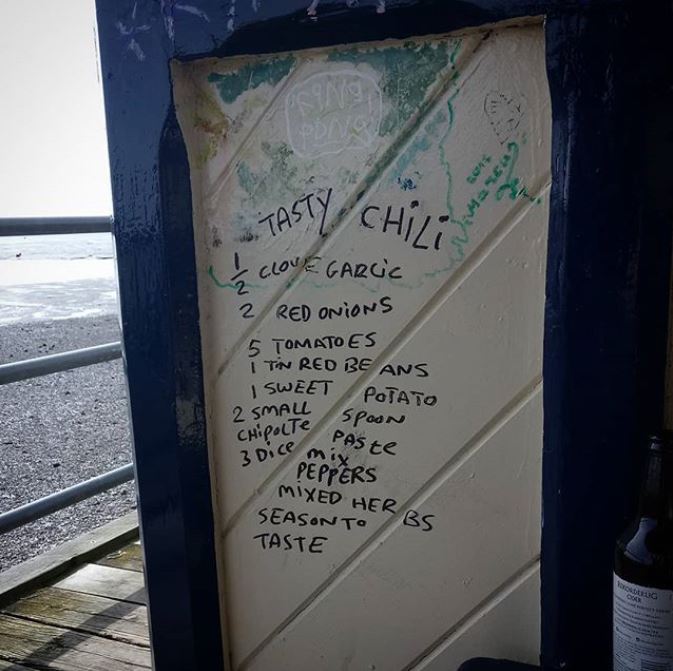 TASTY CHILI
1/2 CLOVE GARLIC
2 RED ONIONS
5 TOMATOES
1 TIN RED BEANS
1 SWEET POTATO
2 SMALL SPOON
CHIPOLTE PASTE
3 DICE MIX
PEPPERS
MIXED HERBS
SEASON TO
TASTE
KOPPARBERG
CIDER